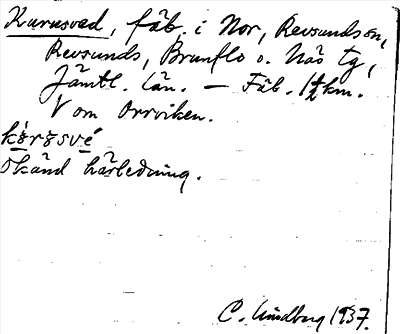 Kurusved, fäb. i Nor, Revsunds sn,
Revsunds, Brunflo o. Näs tg,
Jämtl. län. — Fäb. 1½ km.
V om Orrviken.
Okänd härledning.
C. Lindberg 1937.